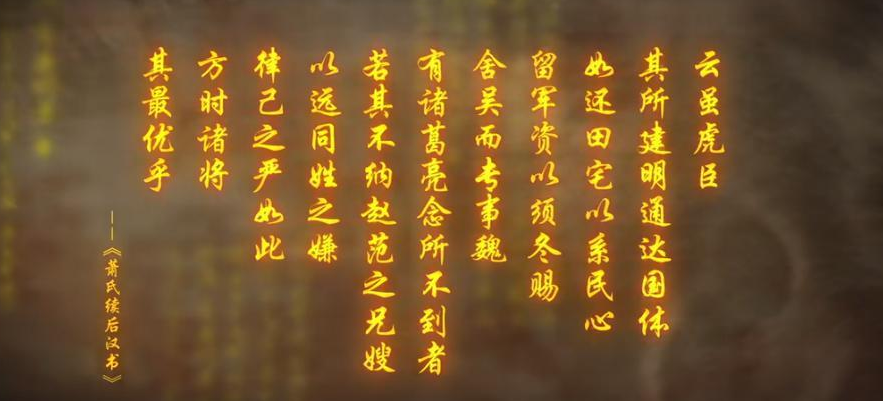 云虽虎臣
其所建明通达国体
如还田宅以系民心
留军资以须冬赐
舍吴而专事魏
有诸葛亮念所不到者
若其不纳赵范之兄嫂
以远同姓之嫌
律己之严如此
方时诸将
其最优乎
——《萧氏续后汉书》